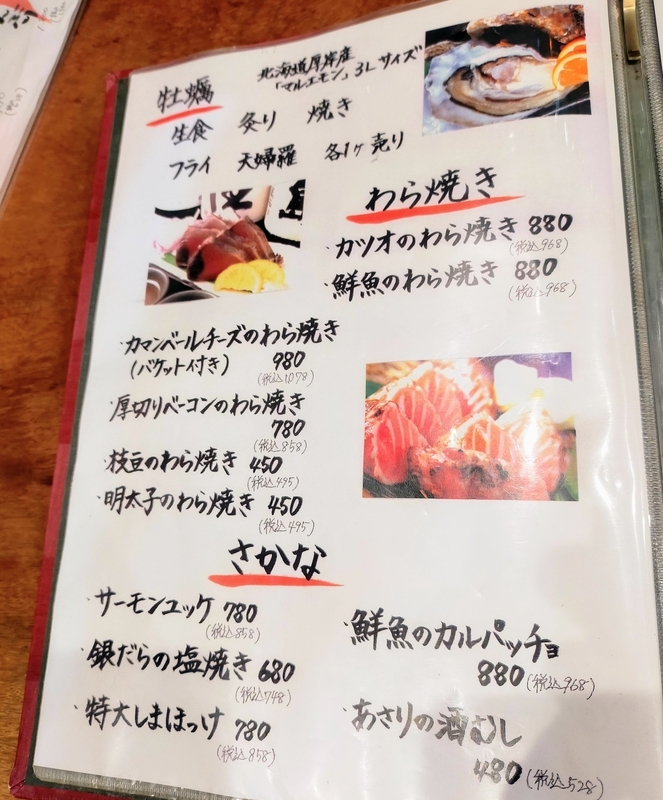 牡蠣
北海道厚岸産
「マルエモン」3Lサイズ
生食 炙り 焼き
フライ 天婦羅 各1ヶ売り
わら焼き
カツオのわら焼き 880
(税込968)
鮮魚のわら焼き 880
(税込968)
カマンベールチーズのわら焼き
(バケット付き) 980
(税込1078)
厚切りベーコンのわら焼き
780
(税込858)
枝豆のわら焼き 450
(税込495)
明太子のわら焼き 450
(税込495)
さかな
サーモンユッケ 780
(税込858)
銀だらの塩焼き 680
(税込748)
特大しまほっけ 780
(税込858)
鮮魚のカルパッチョ
880 (税込968)
あさりの酒むし
480 (税込528)